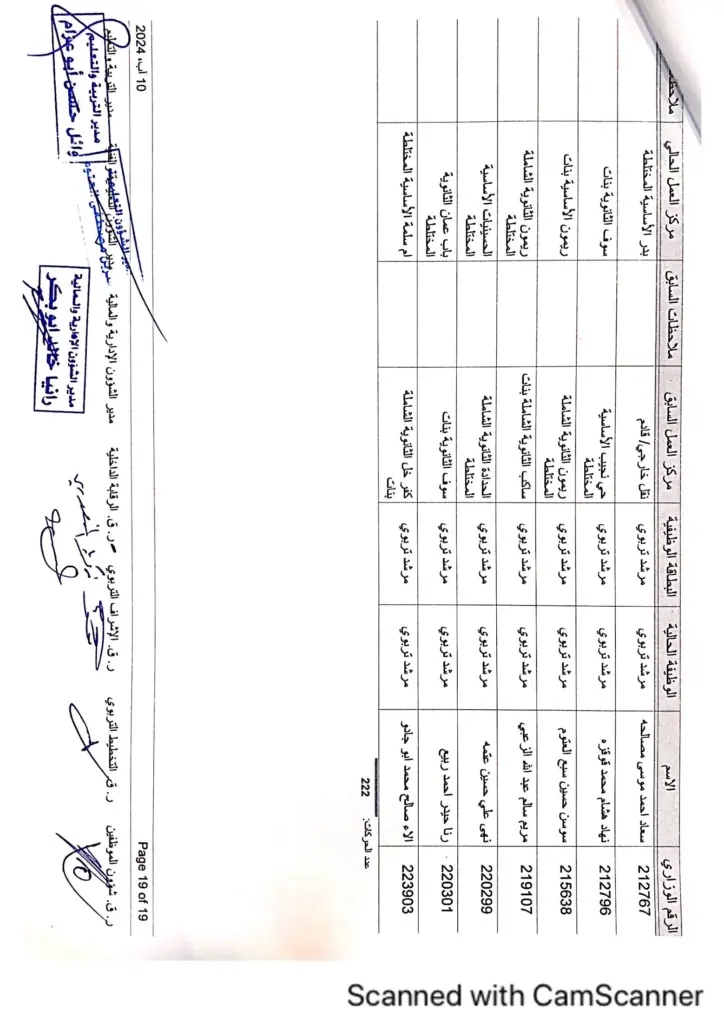 الرقم الوزاري	الاسم	الوظيفة الحالية	البطاقة الوظيفية	مركز العمل السابق	ملاحظات السابق	مركز العمل الحالي
212767	سعاد احمد موسى مصالحه	مرشد تربوي	مرشد تربوي	نقل خارجي/ قادم	بدر الأساسية المختلطة
212796	نهاد هشام محمد قوقزه	مرشد تربوي	مرشد تربوي	حي نجيب الأساسية المختلطة	سوف الثانوية بنات
215638	سوسن حسين سبع العتوم	مرشد تربوي	مرشد تربوي	ريمون الثانوية الشاملة المختلطة	ريمون الأساسية بنات
219107	مريم سالم عبد الله الزعبي	مرشد تربوي	مرشد تربوي	ساكب الثانوية الشاملة بنات	ريمون الثانوية الشاملة المختلطة
220299	نهى علي حسين عتمه	مرشد تربوي	مرشد تربوي	الحدادة الثانوية الشاملة المختلطة	الحسينيات الأساسية المختلطة
220301	رنا حيدر احمد ربيع	مرشد تربوي	مرشد تربوي	سوف الثانوية بنات	باب عمان الثانوية المختلطة
223903	الاء صالح محمد ابو جادو	مرشد تربوي	مرشد تربوي	كفر خل الثانوية الشاملة بنات	ام سلمة الأساسية المختلطة
عدد الحركات: 222
Page 19 of 19
10 آب، 2024
ر. ق. شؤون الموظفين	ر. ق. التخطيط التربوي	ر. ق. الإشراف التربوي	ر. ق. الرقابة الداخلية	مدير الشؤون الإدارية والمالية	مدير التربية والتعليم
مدير الشؤون الإدارية والمالية
رانيا خالد ابو بكر
مدير التربية والتعليم
وائل أبو عزام
Scanned with CamScanner